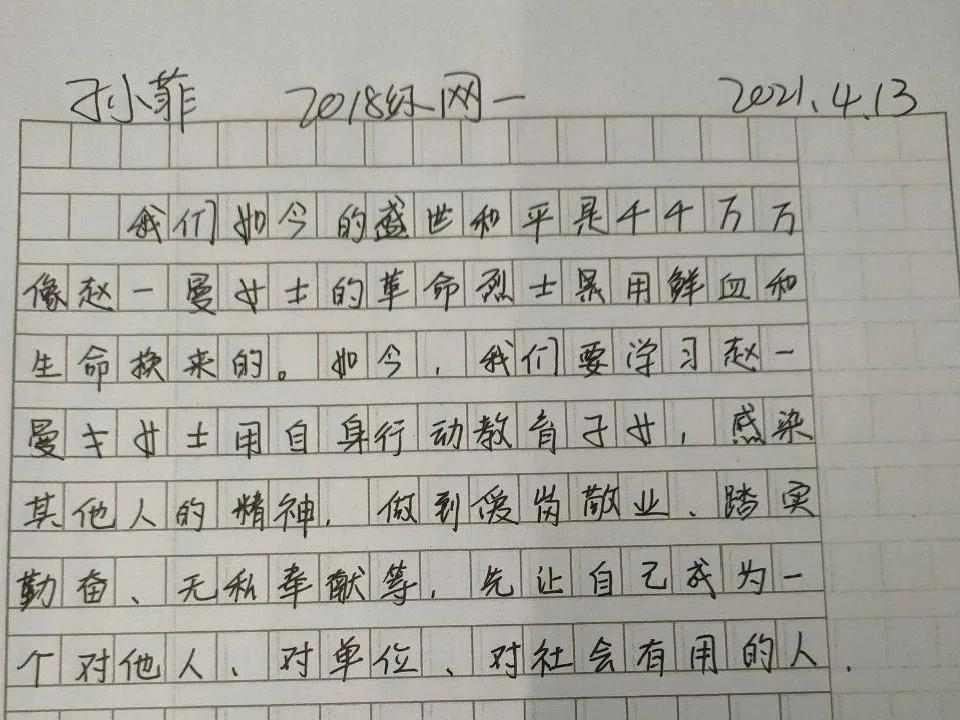 孙菲 2018级网一 2021.4.13
我们如今的盛世和平是千千万万
像赵一曼女士的革命烈士是用鲜血和
生命换来的。如今，我们要学习赵一
曼女士用自身行动教育子女，感染
其他人的精神，做到爱岗敬业、踏实
勤奋、无私奉献等，先让自己成为一
个对他人、对单位、对社会有用的人.